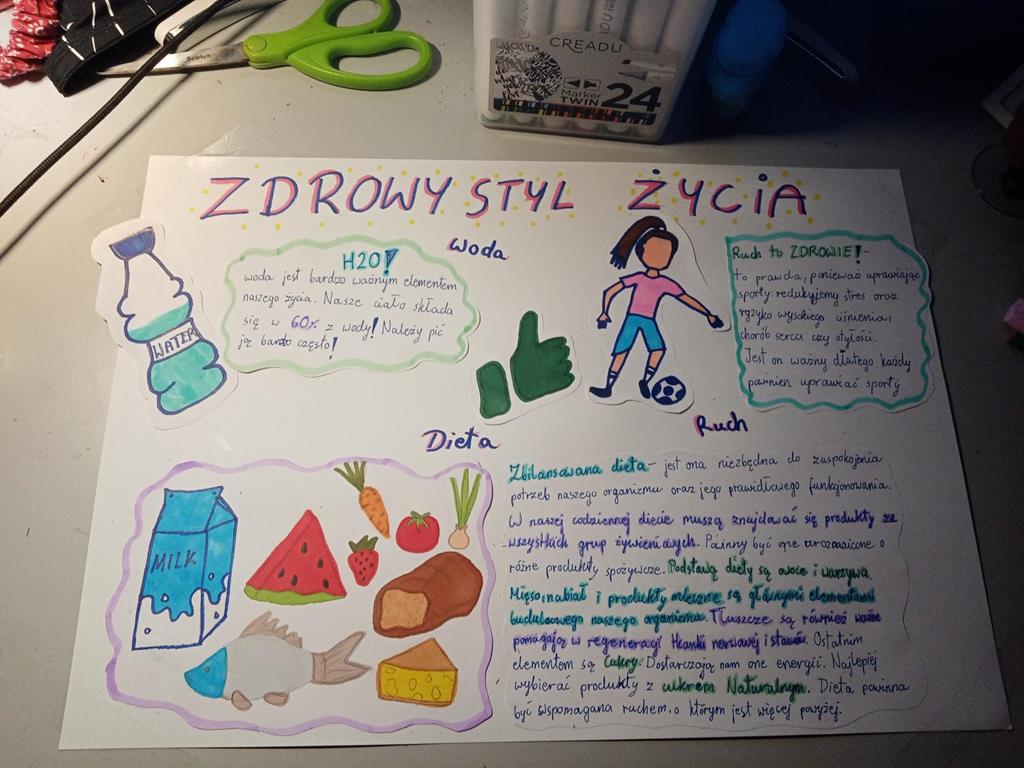 Scotch
CREADU
Marker
TWIN 24
ZDROWY STYL ŻYCIA
WATER
H2O!
woda jest bardzo ważnym elementem
naszego życia. Nasze ciało składa
się w 60% z wody! Należy pić
ją bardzo często!
Woda
Ruch to ZDROWIE! -
to prawda, ponieważ uprawiając
sporty: redukujemy stres oraz
ryzyko wysokiego ciśnienia,
chorób serca czy otyłości.
Jest on ważny dlatego każdy
powinien uprawiać sporty
Ruch
Dieta
MILK
Zbilansowana dieta - jest ona niezbędna do zaspokojenia
potrzeb naszego organizmu oraz jego prawidłowego funkcjonowania.
W naszej codziennej diecie muszą znajdować się produkty ze
wszystkich grup żywieniowych. Powinny być one wzbogacane o
różne produkty spożywcze. Podstawą diety są owoce i warzywa.
Mięso, nabiał i produkty mleczne są głównymi elementami
budulcowego naszego organizmu. Tłuszcze są również ważne
pomagają w regeneracji tkanki nerwowej i stawów. Ostatnim
elementem są Cukry. Dostarczają nam one energii. Najlepiej
wybierać produkty z cukrem Naturalnym. Dieta powinna
być wspomagana ruchem, o którym jest więcej powyżej.